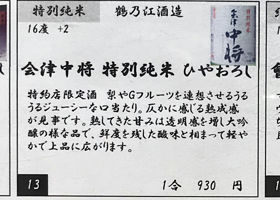 特別純米
鶴乃江酒造
16度 +2
会津中将
会津中将 特別純米 ひやおろし
特約店限定酒 梨やGフルーツを連想させるうる
うるジューシーな口当たり。仄かに感じる熟成感
が見事です。熟してきた甘みは透明感を増し大吟
醸の様な品で、鮮度を残した酸味と相まって軽や
かで上品に広がります。
13
1合 930 円